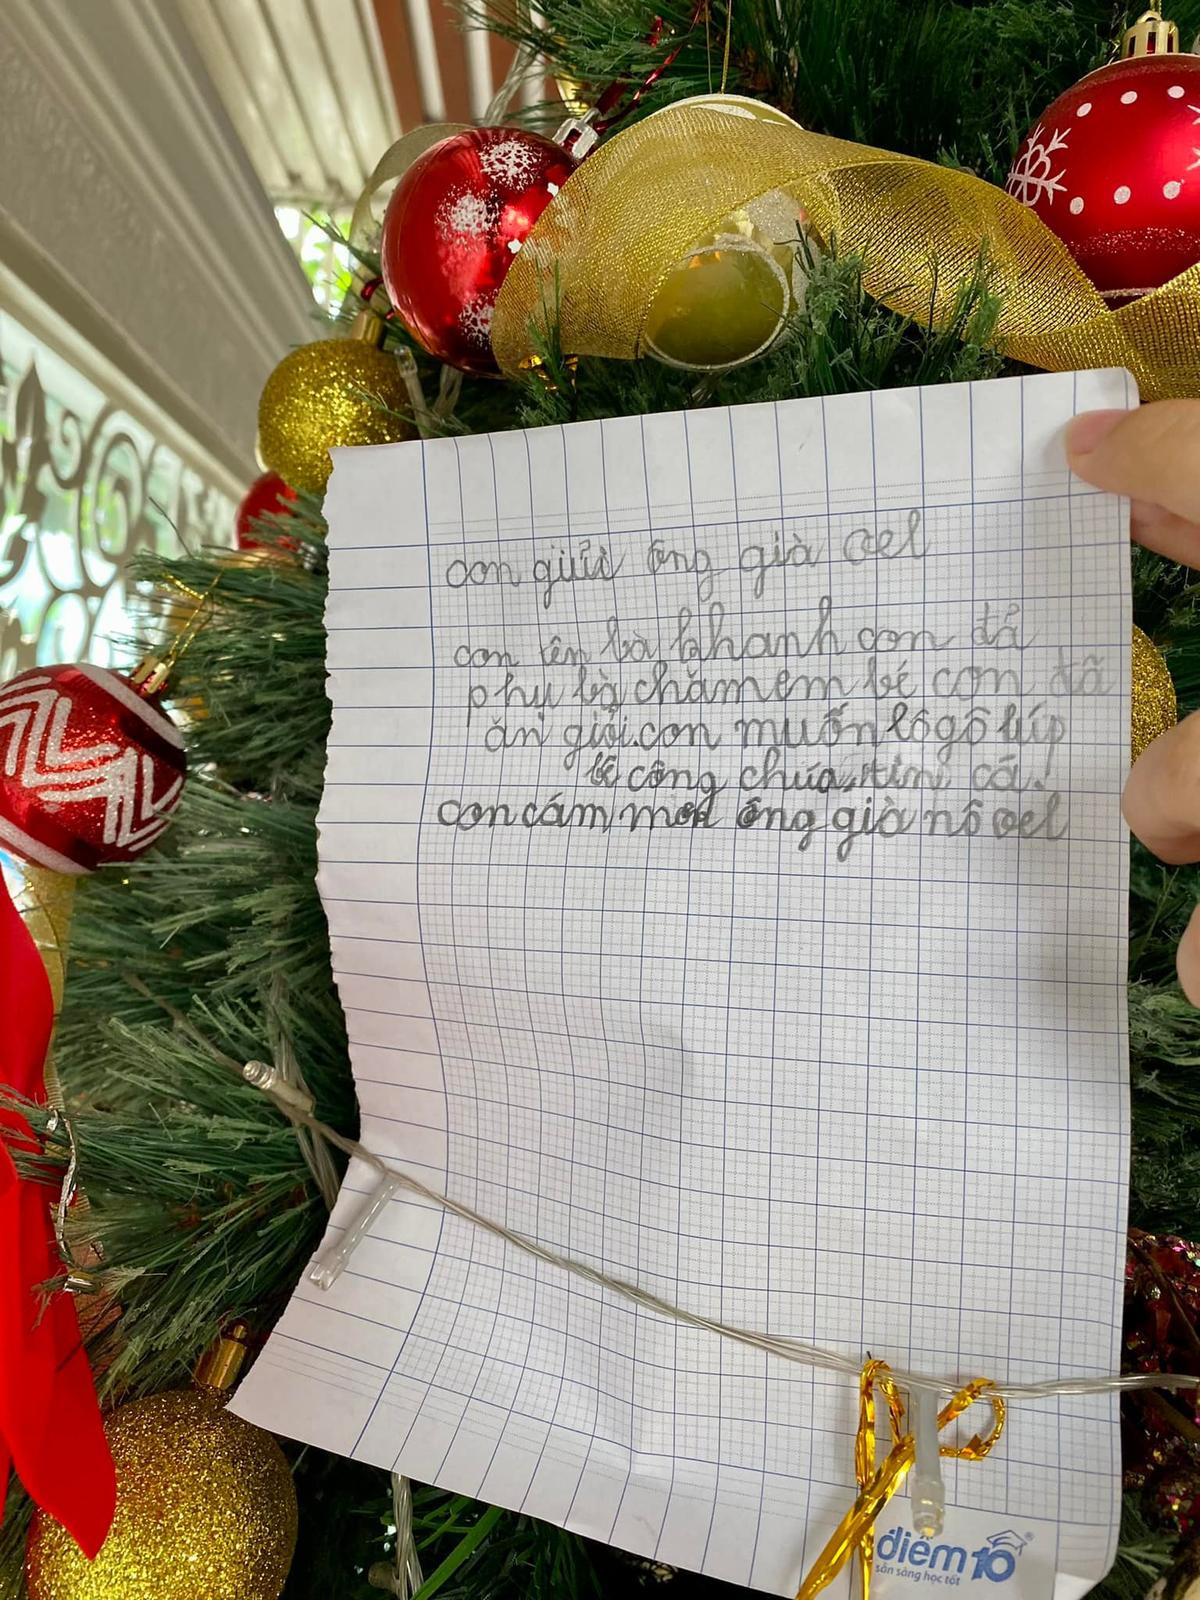 con giửi ông già oel
con tên là khanh con đã
phụ bà chăm em bé con đã
ăn giỏi.con muốn lôgô líp
bê công chúa, tin cá.
con cám mơn ông già nô oel
điểm 10
sẵn sàng học tốt